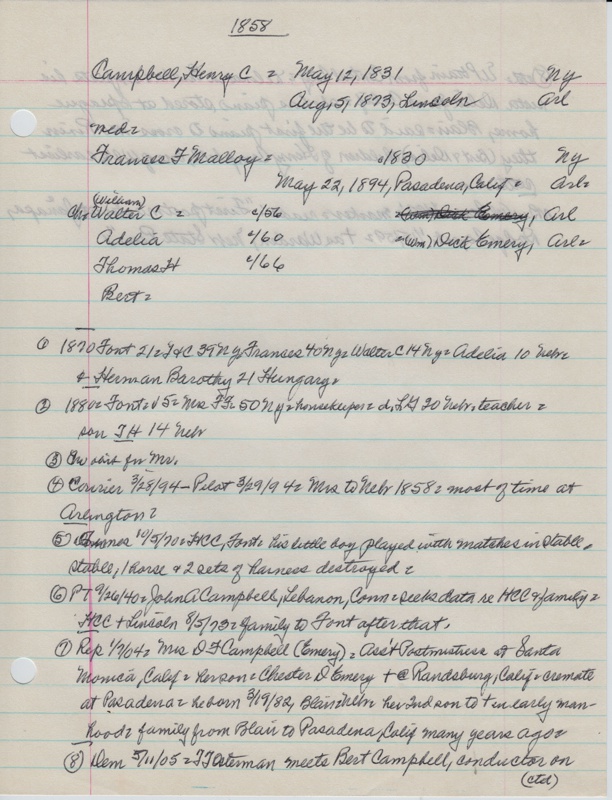 1858
Campbell, Henry C = May 12, 1831 Ny
Aug, 5, 1873, Lincoln Arl
med=
Frances F Malloy = c1830 Ny
May 22, 1894, Pasadena, Calif = Arl=
(William)
Ch= Walter C = c/56 = (Wm) Dick Emery, Arl
Adelia c/60 = (Wm) Dick Emery, Arl=
Thomas H c/66
Bert=
① 1870 Font 21= H&C 39 Ny Frances 40 Ny= Walter C 14 Ny= Adelia 10 Nebr=
& Herman Barothy 21 Hungary=
② 1880= Font= 5= Mrs FF= 50 Ny= housekeeper= d, 20 Nebr, teacher=
son TH 14 Nebr
③ for Mr.
④ Courier 3/28/94 – Pilot 3/29/94= Mrs to Nebr 1858= most of time at
Arlington=
⑤ 10/5/70= HCC, Font= his little boy played with matches in stable,
stable, 1 horse & 2 sets of harness destroyed=
⑥ PT 9/26/40= John A Campbell, Lebanon, Conn= seeks data re HCC & family=
HCC + Lincoln 8/5/73= family to Font after that,
⑦ Rep 1/7/04= Mrs D F Campbell (Emery)= Ass't Postmistress at Santa
Monica, Calif= her son= Chester D Emery + @ Randsburg, Calif= cremate
at Pasadena= he born 3/19/82, Blair Nebr= her 2nd son to + in early man-
hood= family from Blair to Pasadena, Calif many years ago=
⑧ Dem 5/11/05= Osterman meets Bert Campbell, conductor on
(ctd)